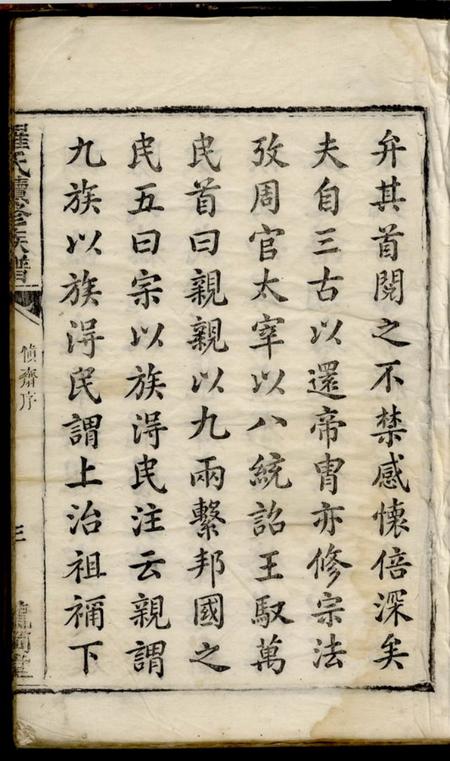 弁其首閱之不禁感懷倍深矣
夫自三古以還帝胄亦修宗法
攷周官太宰以八統詔王馭萬
民首曰親親以九兩繫邦國之
民五曰宗以族淂民注云親謂
九族以族淂民謂上治祖禰下
羅氏續修族譜
偵齋序
三